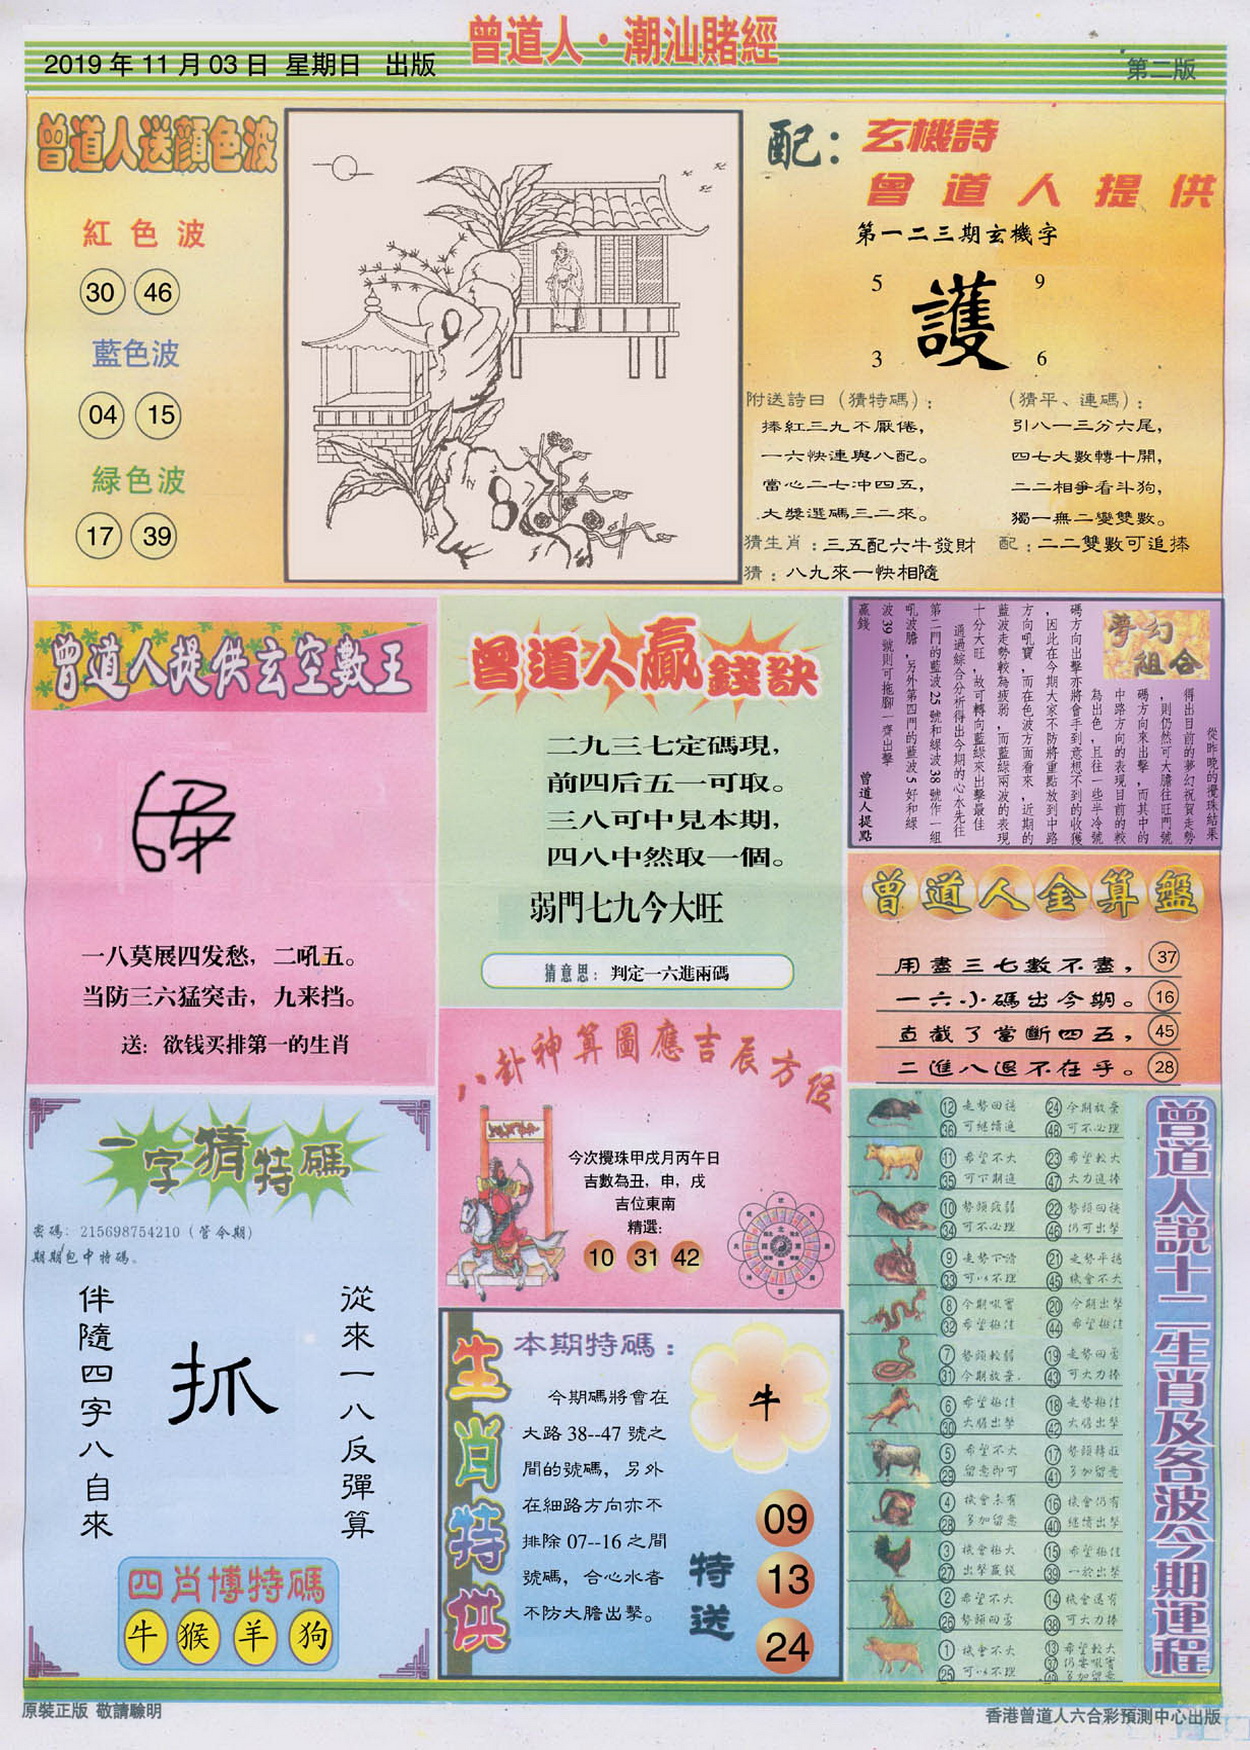 曾道人·潮汕賭經
2019年11月03日 星期日 出版
第二版
曾道人送顔色波
紅色波
30 46
藍色波
04 15
緑色波
17 39
配：玄機詩
曾道人提供
第一二三期玄機字
5 9
護
3 6
附送詩曰（猜特碼）：
捧紅三九不厭倦，
一六快連與八配。
當心二七冲四五，
大獎選碼三二來。
（猜平、連碼）：
引八一三分六尾，
四七大數轉十開，
二二相爭看斗狗，
獨一無二變雙數。
猜生肖：三五配六牛發財
配：二二雙數可追捧
猜：八九來一快相隨
曾道人提供玄空數王
一八莫展四发愁，二吼五。
当防三六猛突击，九来挡。
送：欲钱买排第一的生肖
曾道人贏錢訣
二九三七定碼現，
前四后五一可取。
三八可中見本期，
四八中然取一個。
弱門七九今大旺
猜意思：判定一六進兩碼
夢幻組合
從昨晚的攪珠結果
得出目前的夢幻祝賀走勢
，則仍然可大膽往旺門號
碼方向來出擊，而其中的
中路方向的表現目前的較
為出色，且往一些半冷號
碼方向出擊亦將會手到意想不到的收獲
，因此在今期大家不防將重點放到中路
方向吼寶，而在色波方面看來，近期的
藍波走勢較為疲弱，而藍綠兩波的表現
十分大旺，故可轉向藍綠來出擊最佳
通過綜合分析得出今期的心水先往
第二門的藍波25號和綠波38號作一組
吼波膽，另外第四門的藍波5好和綠
波39號則可拖腳一齊出擊
贏錢
曾道人提點
曾道人金算盤
用盡三七數不盡，37
一六小碼出今期。16
直截了當斷四五，45
二進八退不在乎。28
八卦神算圖應吉辰方位
今次攪珠甲戌月丙午日
吉數為丑，申，戌
吉位東南
精選：
10 31 42
一字猜特碼
密碼：215698754210（管令期）
期期包中特碼。
從來一八反彈算
抓
伴隨四字八自來
四肖博特碼
牛 猴 羊 狗
生肖特供
本期特碼：
今期碼將會在
大路38--47號之
間的號碼，另外
在細路方向亦不
排除07--16之間
號碼，合心水者
不防大膽出擊。
牛
特送
09
13
24
曾道人説十二生肖及各波今期運程
12 走勢回穩 24 今期放棄
36 可繼續追 48 可不必理
11 希望不大 23 希望較大
35 可下期追 47 大力追捧
10 勢頭疲弱 22 勢頭回穩
34 可不必理 46 仍可出擊
9 走勢下滑 21 走勢平穩
33 可以不理 45 機會不大
8 今期吸寶 20 今期出擊
32 希望極佳 44 希望極佳
7 勢頭較弱 19 走勢回雷
31 今期放棄 43 可大力捧
6 希望極佳 18 走勢極佳
30 大膽出擊 42 大膽出擊
5 希望不大 17 勢頭轉旺
29 留意即可 41 多加留意
4 機會未有 16 機會仍有
28 多加留意 40 繼續出擊
3 機會極大 15 希望極佳
27 出擊贏錢 39 一於出擊
2 希望不大 14 機會還有
26 勢頭回雷 38 可大力捧
1 機會不大 13 希望較大
25 可以不理 37 仍要吸寶
多加留意
原裝正版 敬請驗明
香港曾道人六合彩預測中心出版